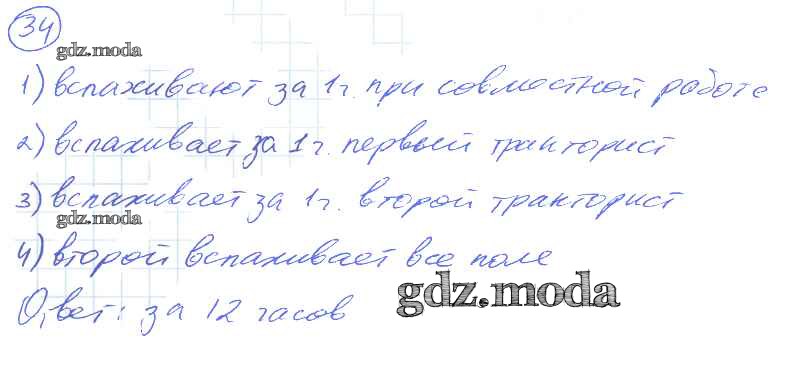 34
gdz.moda
1) вспахивают за 1г. при совместной работе
2) вспахивает за 1г. первый тракторист
3) вспахивает за 1г. второй тракторист
gdz.moda
4) второй вспахивает все поле
gdz.moda
Ответ: за 12 часов